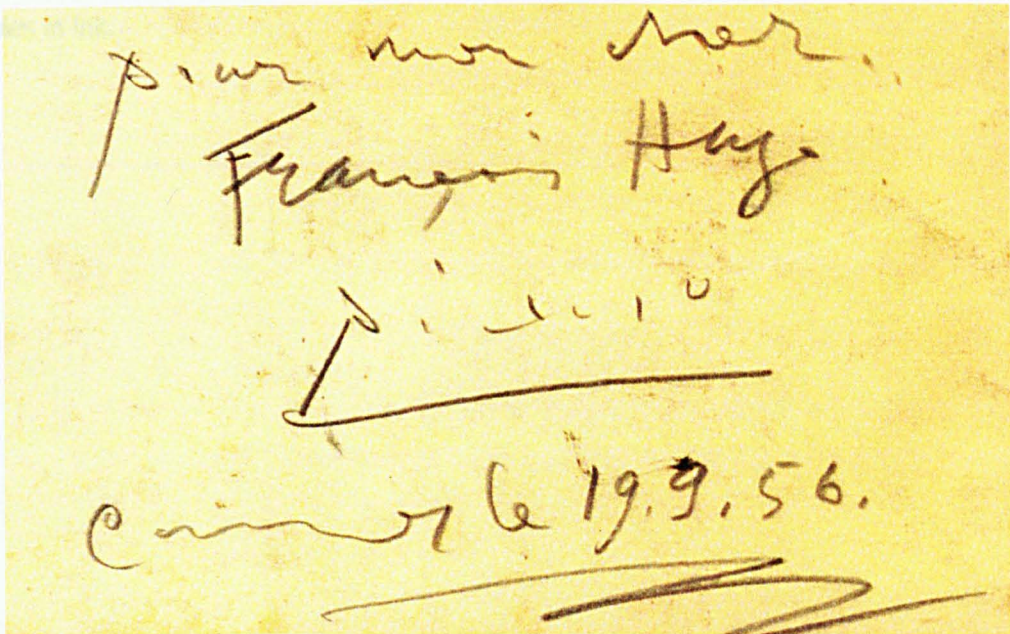 pour mon cher
François Hugo
Picasso
Cannes le 19.9.56.